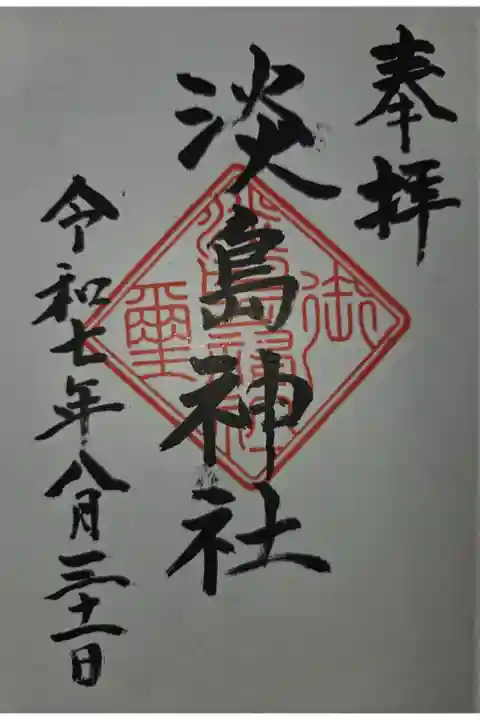 奉拝
淡島神社
御璽
令和七年八月三十一日